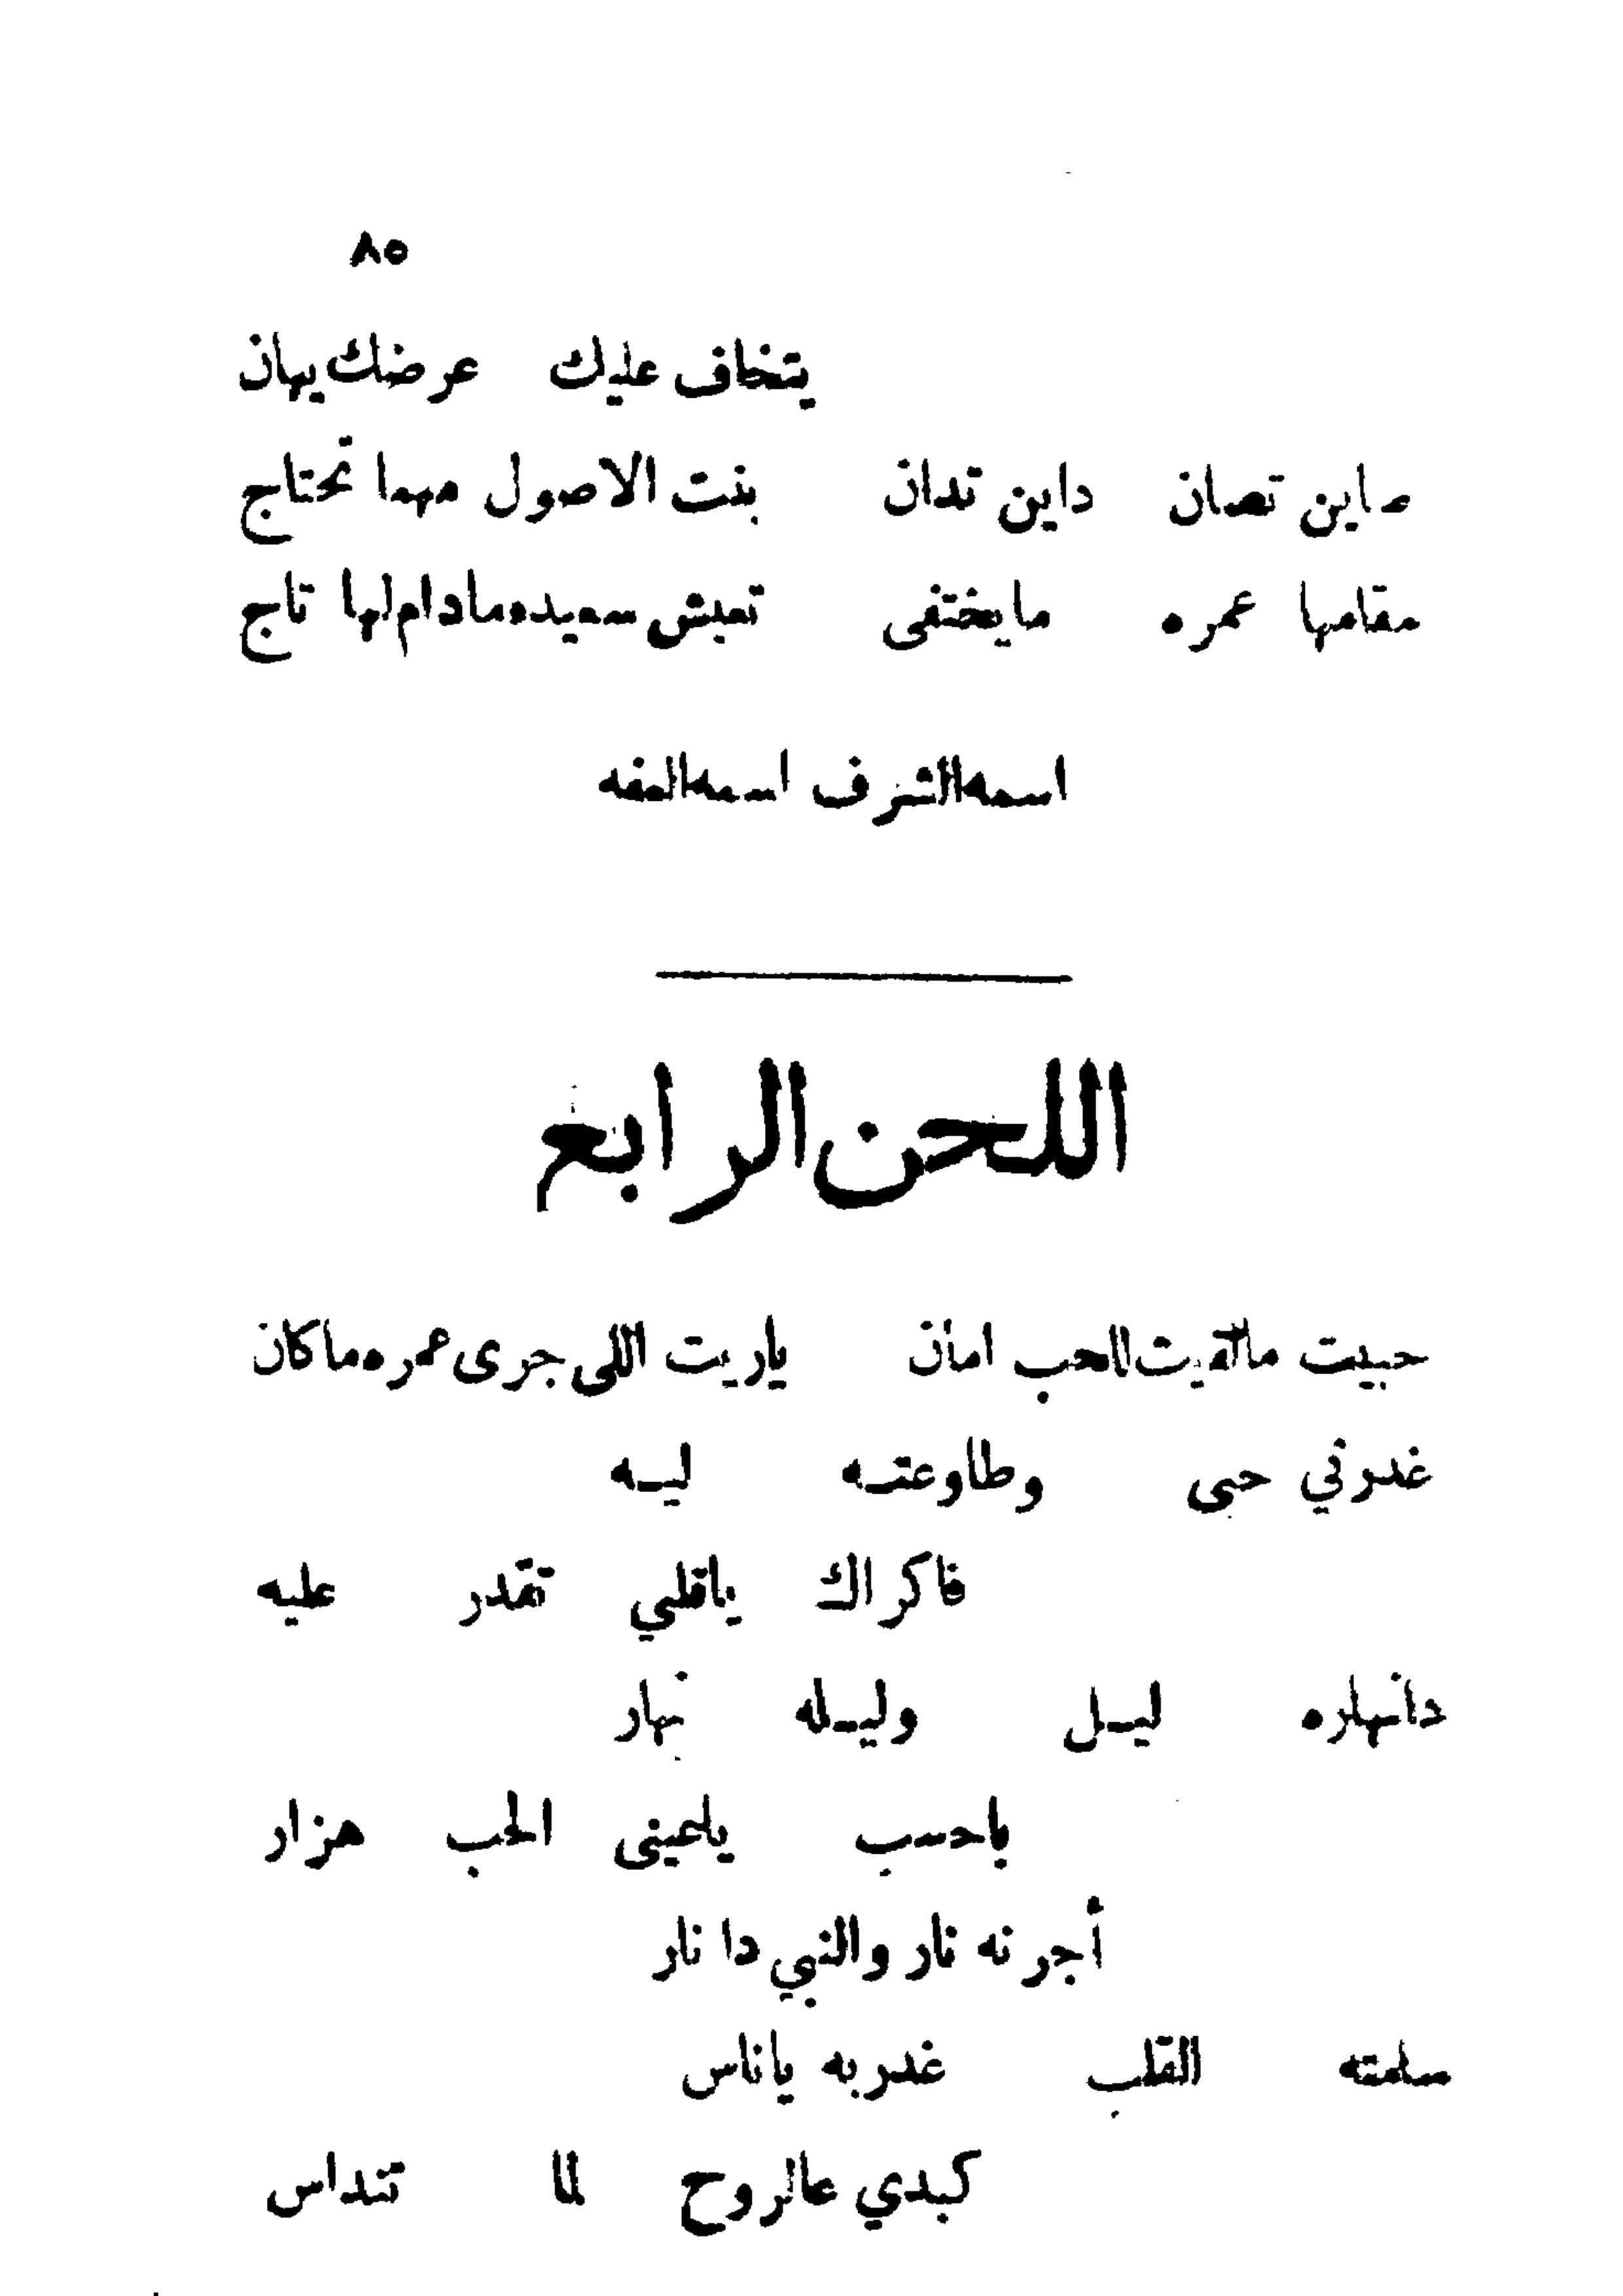 ٨٥
يتخاف عليك عرضك يهان
صاين تصان داين تدان بنت الاصول مهما تحتاج
مقامها عمره مايختفى تعيش سعيده مادام لها تاج
اسمه الشرف اسمه العفه
اللحن الرابع
حبيت مالقيت للحب امان ياريت اللى جرى عمره ما كان
غدرني حبى وطاوعته ليه
فاكراك ياقلبي تقدر عليه
دانهاره ليل وليله نهار
باحسب يلعينى الحب هزار
أجرنه نار والنبي دا نار
سلمته القلب غدر به ياناس
كبدي عالروح لما تنداس